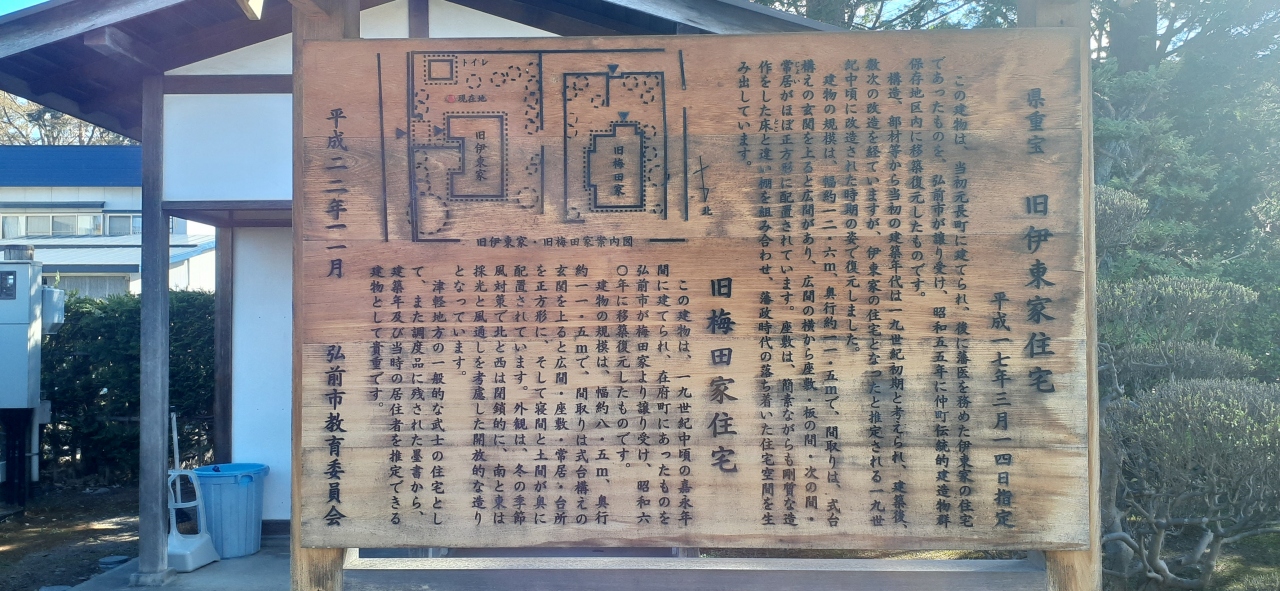 県重宝　旧伊東家住宅
平成一七年三月一四日指定
この建物は、当初元長町に建てられ、後に藩医を務めた伊東家の住宅
であったものを、弘前市が譲り受け、昭和五五年に仲町伝統的建造物群
保存地区内に移築復元したものです。
構造、部材等から当初の建築年代は一九世紀初期と考えられ、建築後、
数次の改造を経ていますが、伊東家の住宅となったと推定される一九世
紀中頃に改造された時期の姿で復元しました。
建物の規模は、幅約一二・六m、奥行約一一・五mで、間取りは、式台
構えの玄関を上ると広間があり、広間の横から座敷・板の間・次の間・
常居がほぼ正方形に配置されています。座敷は、簡素ながらも剛質な造
作をした床と違い棚を組み合わせ、藩政時代の落ち着いた住宅空間を生
み出しています。
北
トイレ
現在地
旧伊東家
旧梅田家
旧伊東家・旧梅田家案内図
旧梅田家住宅
この建物は、一九世紀中頃の嘉永年
間に建てられ、在府町にあったものを
弘前市が梅田家より譲り受け、昭和六
〇年に移築復元したものです。
建物の規模は、幅約八・五m、奥行
約一一・五mで、間取りは式台構えの
玄関を上ると広間・座敷・常居・台所
を正方形に、そして寝間と土間が奥に
配置されています。外観は、冬の季節
風対策で北と西は閉鎖的に、南と東は
採光と風通しを考慮した開放的な造り
となっています。
津軽地方の一般的な武士の住宅とし
て、また調度品に残された墨書から、
建築年及び当時の居住者を推定できる
建物として貴重です。
平成二二年一一月　弘前市教育委員会